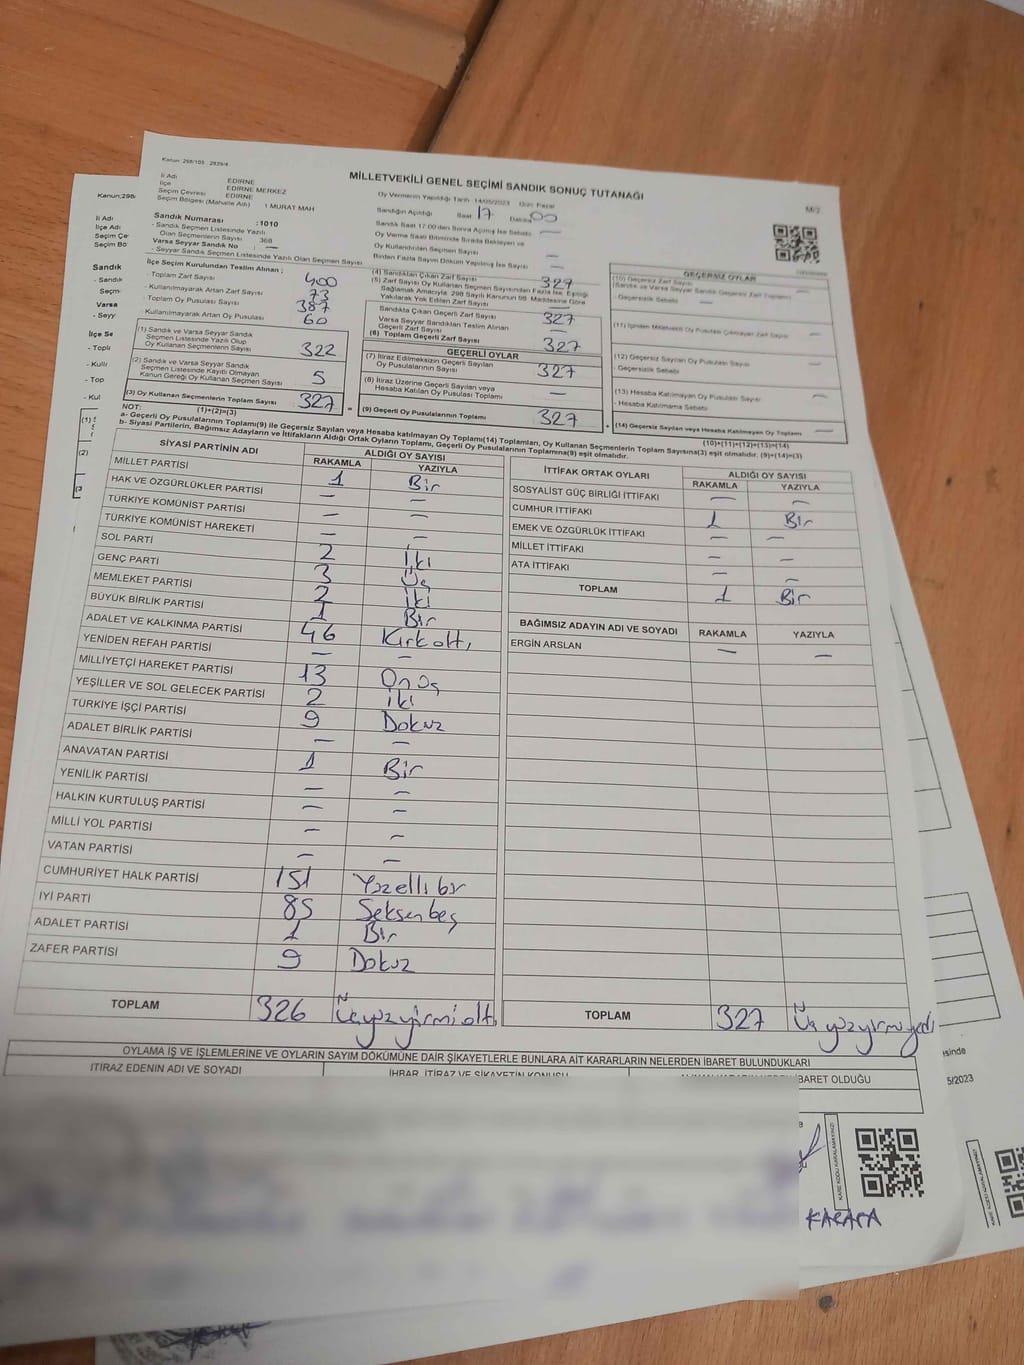 Kanun: 298/105 2839/4
MİLLETVEKİLİ GENEL SEÇİMİ SANDIK SONUÇ TUTANAĞI
İli Adı EDİRNE
İlçe EDİRNE MERKEZ
Seçim Çevresi EDİRNE
Seçim Bölgesi (Mahalle Adı) 1 MURAT MAH
Oy Vermenin Yapıldığı Tarih :14/05/2023 Gün: Pazar
Sandığın Açıldığı Saat 17 Dakika 00
Sandık Saat 17.00'den Sonra Açılmış İse Sebebi —
Oy Verme Saati Bitiminde Sırada Bekleyen ve
Oy Kullandırılan Seçmen Sayısı —
Birden Fazla Sayım Döküm Yapılmış İse Sayısı —
Sandık Numarası :1010
- Sandık Seçmen Listesinde Yazılı
Olan Seçmenlerin Sayısı 368
Varsa Seyyar Sandık No : —
- Seyyar Sandık Seçmen Listesinde Yazılı Olan Seçmen Sayısı
İlçe Seçim Kurulundan Teslim Alınan ;
- Toplam Zarf Sayısı 400
- Kullanılmayarak Artan Zarf Sayısı 73
- Toplam Oy Pusulası Sayısı 387
- Kullanılmayarak Artan Oy Pusulası 60
(1) Sandık ve Varsa Seyyar Sandık
Seçmen Listesinde Yazılı Olup
Oy Kullanan Seçmenlerin Sayısı 322
(2) Sandık ve Varsa Seyyar Sandık
Seçmen Listesinde Kayıtlı Olmayan
Kanun Gereği Oy Kullanan Seçmen Sayısı 5
(3) Oy Kullanan Seçmenlerin Toplam Sayısı 327
(1)+(2)=(3)
(4) Sandıktan Çıkan Zarf Sayısı 327
(5) Zarf Sayısı Oy Kullanan Seçmen Sayısından Fazla İse, Eşitliği
Sağlamak Amacıyla, 298 Sayılı Kanunun 98. Maddesine Göre
Yakılarak Yok Edilen Zarf Sayısı —
Sandıkta Çıkan Geçerli Zarf Sayısı 327
Varsa Seyyar Sandıktan Teslim Alınan
Geçerli Zarf Sayısı —
(6) Toplam Geçerli Zarf Sayısı 327
GEÇERLİ OYLAR
(7) İtiraz Edilmeksizin Geçerli Sayılan
Oy Pusulalarının Sayısı 327
(8) İtiraz Üzerine Geçerli Sayılan veya
Hesaba Katılan Oy Pusulası Toplamı —
(9) Geçerli Oy Pusulalarının Toplamı 327
GEÇERSİZ OYLAR
(10) Geçersiz Zarf Sayısı
(Sandık ve Varsa Seyyar Sandık Geçersiz Zarf Toplamı) —
- Geçersizlik Sebebi —
(11) İçinden Milletvekili Oy Pusulası Çıkmayan Zarf Sayısı —
(12) Geçersiz Sayılan Oy Pusulası Sayısı —
- Geçersizlik Sebebi
(13) Hesaba Katılmayan Oy Pusulası Sayısı —
- Hesaba Katılmama Sebebi
(14) Geçersiz Sayılan veya Hesaba Katılmayan Oy Toplamı —
(10)+(11)+(12)+(13)=(14)
NOT:
a- Geçerli Oy Pusulalarının Toplamı(9) ile Geçersiz Sayılan veya Hesaba katılmayan Oy Toplamı(14) Toplamları, Oy Kullanan Seçmenlerin Toplam Sayısına(3) eşit olmalıdır. (9)+(14)=(3)
b- Siyasi Partilerin, Bağımsız Adayların ve İttifakların Aldığı Ortak Oyların Toplamı, Geçerli Oy Pusulalarının Toplamına(9) eşit olmalıdır.
SİYASİ PARTİNİN ADI ALDIĞI OY SAYISI
RAKAMLA YAZIYLA
MİLLET PARTİSİ 1 Bir
HAK VE ÖZGÜRLÜKLER PARTİSİ — —
TÜRKİYE KOMÜNİST PARTİSİ — —
TÜRKİYE KOMÜNİST HAREKETİ — —
SOL PARTİ 2 İki
GENÇ PARTİ 3 Üç
MEMLEKET PARTİSİ 2 İki
BÜYÜK BİRLİK PARTİSİ 1 Bir
ADALET VE KALKINMA PARTİSİ 46 Kırkaltı
YENİDEN REFAH PARTİSİ — —
MİLLİYETÇİ HAREKET PARTİSİ 13 Onüç
YEŞİLLER VE SOL GELECEK PARTİSİ 2 iki
TÜRKİYE İŞÇİ PARTİSİ 9 Dokuz
ADALET BİRLİK PARTİSİ — —
ANAVATAN PARTİSİ 1 Bir
YENİLİK PARTİSİ — —
HALKIN KURTULUŞ PARTİSİ — —
MİLLİ YOL PARTİSİ — —
VATAN PARTİSİ — —
CUMHURİYET HALK PARTİSİ 151 Yüzellibir
İYİ PARTİ 85 Seksenbeş
ADALET PARTİSİ 1 Bir
ZAFER PARTİSİ 9 Dokuz
TOPLAM 326 Üçyüzyirmialtı
İTTİFAK ORTAK OYLARI ALDIĞI OY SAYISI
RAKAMLA YAZIYLA
SOSYALİST GÜÇ BİRLİĞİ İTTİFAKI — —
CUMHUR İTTİFAKI 1 Bir
EMEK VE ÖZGÜRLÜK İTTİFAKI — —
MİLLET İTTİFAKI — —
ATA İTTİFAKI — —
TOPLAM 1 Bir
BAĞIMSIZ ADAYIN ADI VE SOYADI RAKAMLA YAZIYLA
ERGİN ARSLAN — —
TOPLAM 327 Üçyüzyirmiyedi
OYLAMA İŞ VE İŞLEMLERİNE VE OYLARIN SAYIM DÖKÜMÜNE DAİR ŞİKAYETLERLE BUNLARA AİT KARARLARIN NELERDEN İBARET BULUNDUKLARI
İTİRAZ EDENİN ADI VE SOYADI İHBAR, İTİRAZ VE ŞİKAYETİN KONUSU BARET OLDUĞU
KARE KODU KARALAMAYINIZ!
KARACA
Kanun:298/
İli Adı
İlçe Adı
Seçim Çe
Seçim Bö
Sandık
- Sandık
Seçm
Varsa
- Seyy
İlçe Se
- Topl
- Kulla
- Top
- Kul
(1) S
(2)
(3
esinde
5/2023
KARE KODU KARALAMAYINIZ!